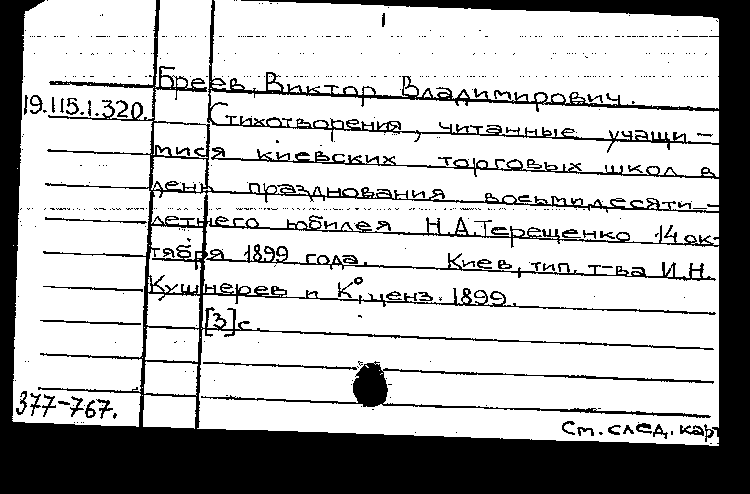 Бреев, Виктор Владимирович.
19.115.1.320. Стихотворения, читанные учащи-
мися киевских торговых школ в
день празднования восьмидесяти-
летнего юбилея Н.А.Терещенко 14 ок-
тября 1899 года. Киев, тип. т-ва И.Н.
Кушнерев и К°, ценз. 1899.
[3]с.
377-767.
См. след. карт